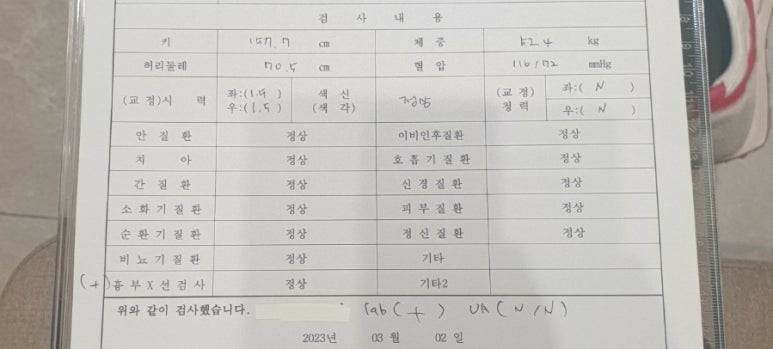 검 사 내 용
키 157.7 cm 체 중 52.4 kg
허리둘레 70.5 cm 혈 압 116/72 mmHg
(교 정)시 력 좌:(1.5 ) 우:(1.5 ) 색 신 (색 각) 정상 (교 정) 청 력 좌:( N ) 우:( N )
안 질 환 정상 이비인후질환 정상
치 아 정상 호 흡 기 질 환 정상
간 질 환 정상 신 경 질 환 정상
소 화 기 질 환 정상 피 부 질 환 정상
순 환 기 질 환 정상 정 신 질 환 정상
비 뇨 기 질 환 정상 기타
(+) 흉 부 X 선 검 사 정상 기타2
위와 같이 검사했습니다. lab (+) UA ( N / N )
2023년 03 월 02 일